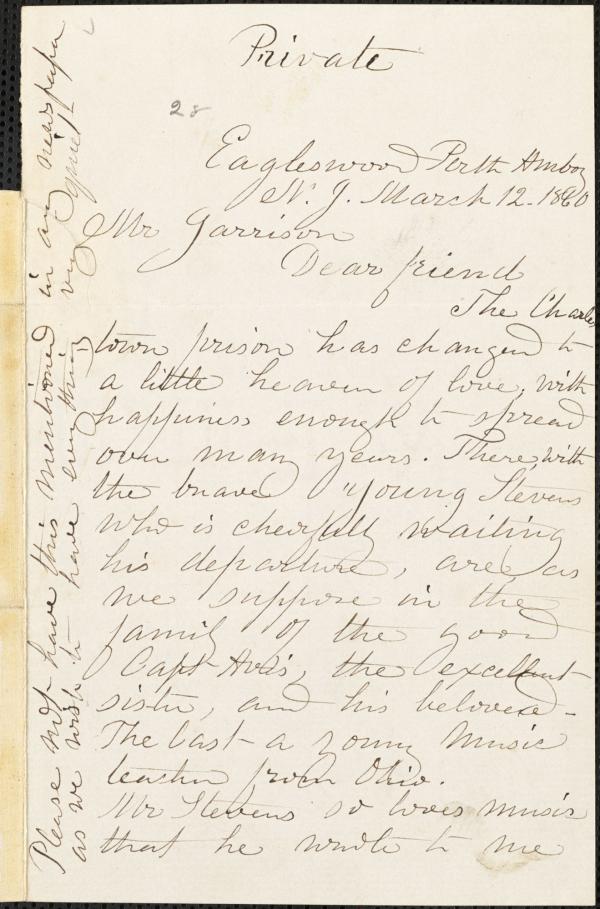 Private
28
Eagleswood Perth Amboy
N. J. March 12. 1860
Mr Garrison
Dear friend
The Charles
town prison has changed to
a little heaven of love, with
happiness enough to spread
over many years. There, with
the brave young Stevens
who is cheerfully waiting
his departure, are as
we suppose in the
family of the good
Capt Avis, the excellent
sister, and his beloved -
The last - a young music
teacher from Ohio.
Mr Stevens so loves music
that he wrote to me
Please not have this mentioned in any newspaper
as we wish to have everything very quiet